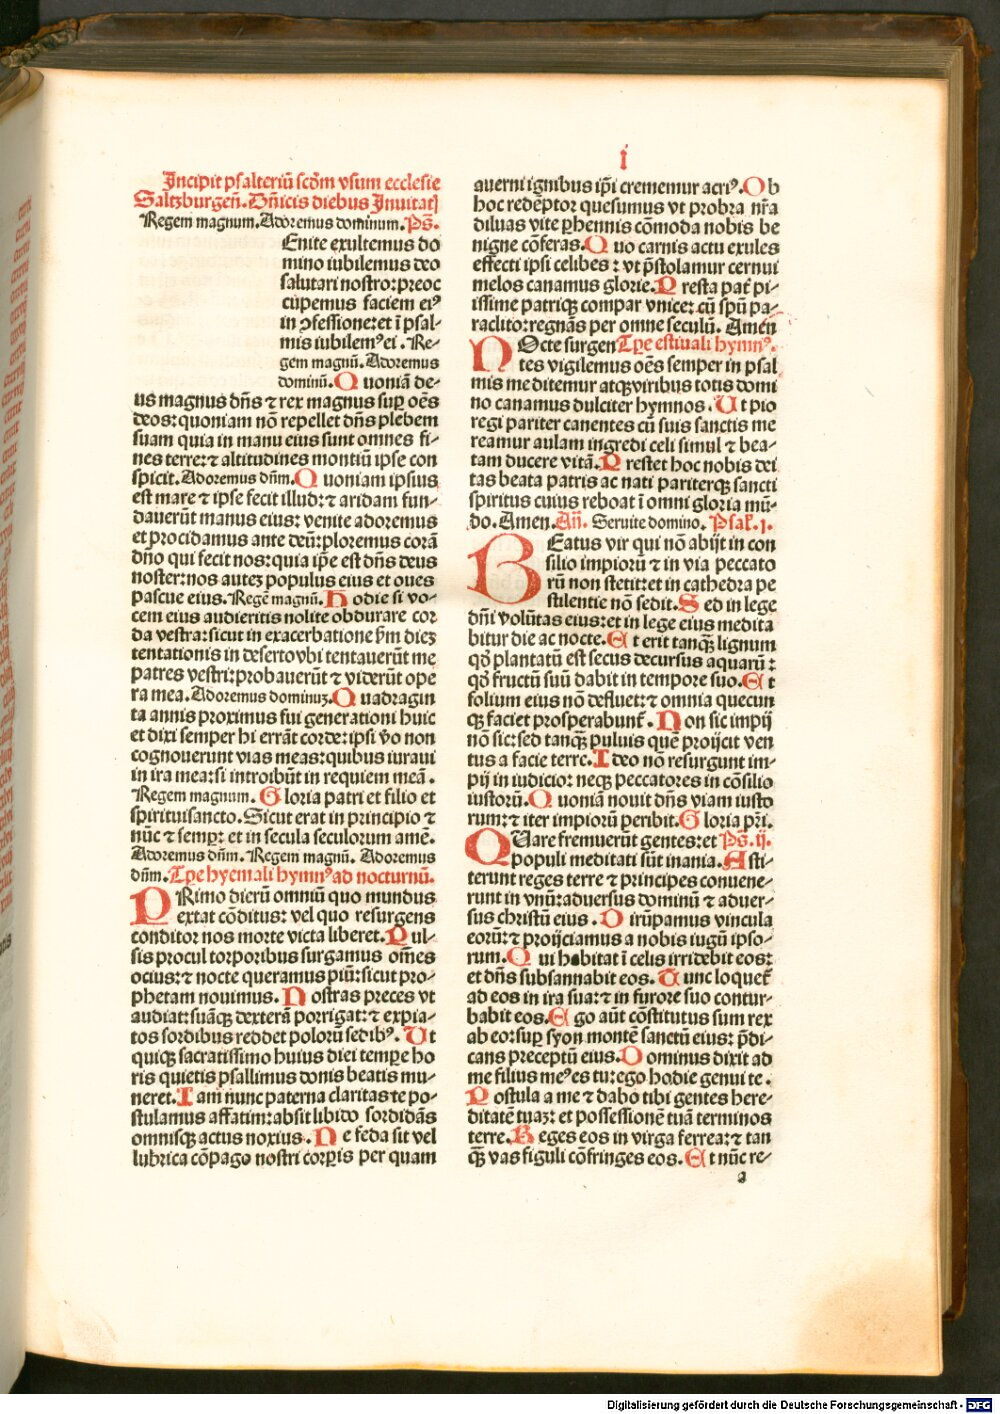 i
Incipit psalteriū scd̄m vsum ecclesie
Saltzburgeñ. Dn̄icis diebus Inuitatꝭ
Regem magnum. Adoremus dominum. Ps̄.
Enite exultemus do
mino iubilemus deo
salutari nostro: preoc
cupemus faciem eiꝰ
in ↄfessione: et ī psal⸗
mis iubilemꝰ ei. Re⸗
gem magnū. Adoremus
dominū. Quoniā de⸗
us magnus dn̄s ⁊ rex magnus suꝑ oēs
deos: quoniam nō repellet dn̄s plebem
suam quia in manu eius sunt omnes fi⸗
nes terre: ⁊ altitudines montiū ipse con
spicit. Adoremus dn̄m. Quoniam ipsius
est mare ⁊ ipse fecit illud: ⁊ aridam fun⸗
dauerūt manus eius: venite adoremus
et procidamus ante deū: ploremus corā
dn̄o qui fecit nos: quia ip̄e est dn̄s deus
noster: nos autez populus eius et oues
pascue eius. Regē magnū. Hodie si vo⸗
cem eius audieritis nolite obdurare cor
da vestra: sicut in exacerbatione ẜm diez
tentationis in deserto vbi tentauerūt me
patres vestri: probauerūt ⁊ viderūt ope
ra mea. Adoremus dominuz. Quadragin
ta annis proximus fui generationi huic
et dixi semper hi errāt corde: ipsi v̄o non
cognouerunt vias meas: quibus iuraui
in ira mea: si introibūt in requiem meā.
Regem magnum. Gloria patri et filio et
spirituisancto. Sicut erat in principio ⁊
nūc ⁊ sempꝑ: et in secula seculorum amē.
Adoremus dn̄m. Regem magnū. Adoremus
dn̄m. Tꝑe hyemali hymnꝰ ad nocturnū.
PRimo dierū omniū quo mundus
extat cōditus: vel quo resurgens
conditor nos morte victa liberet. Pul⸗
sis procul torporibus surgamus om̄es
ocius: ⁊ nocte queramus piū: sicut pro⸗
phetam nouimus. Nostras preces vt
audiat: suāqꝫ dexterā porrigat: ⁊ expia⸗
tos sordibus reddet polorū sedibꝰ. Ut
quiqꝫ sacratissimo huius diei tempꝑe ho
ris quietis psallimus donis beatis mu⸗
neret. Iam nunc paterna claritas te po⸗
stulamus affatim: absit libido sordidās
omnisqꝫ actus noxius. Ne feda sit vel
lubrica cōpago nostri corꝑis per quam
auerni ignibus ip̄i crememur acriꝰ. Ob
hoc redēptor quesumus vt probra nr̄a
diluas vite ꝑhennis cōmoda nobis be
nigne cōferas. Quo carnis actu exules
effecti ipsi celibes: vt p̄stolamur cernui
melos canamus glorie. Presta pat̄ pi⸗
issime patriqꝫ compar vnice: cū spū pa⸗
raclito: regnās per omne seculū. Amen
NOcte surgen Tꝑe estiuali hymnꝰ.
tes vigilemus oēs semper in psal
mis meditemur atqꝫ viribus totis domi
no canamus dulciter hymnos. Ut pio
regi pariter canentes cū suis sanctis me
reamur aulam ingredi celi simul ⁊ bea⸗
tam ducere vitā. Prestet hoc nobis dei
tas beata patris ac nati pariterqꝫ sancti
spiritus cuius reboat ī omni gloria mū⸗
do. Amen. An̄. Seruite domino. Psal̄. i.
BEatus vir qui nō abijt in con
silio impiorū ⁊ in via peccato
rū non stetit: et in cathedra pe
stilentie nō sedit. Sed in lege
dn̄i volūtas eius: et in lege eius medita
bitur die ac nocte. Et erit tanqꝫ lignum
qd̄ plantatū est secus decursus aquarū:
qd̄ fructū suū dabit in tempore suo. Et
folium eius nō defluet: ⁊ omnia quecun
qꝫ faciet prosperabunt̄. Non sic impij
nō sic: sed tanqꝫ puluis quē proijcit ven
tus a facie terre. Ideo nō resurgunt im⸗
pij in iudicio: neqꝫ peccatores in cōsilio
iustorū. Quoniā nouit dn̄s viam iusto
rum: ⁊ iter impiorū peribit. Gloria pr̄i.
QUare fremuerūt gentes: et Ps̄. ij.
populi meditati sūt inania. Asti⸗
terunt reges terre ⁊ principes conuene⸗
runt in vnū: aduersus dominū ⁊ aduer⸗
sus christū eius. Dirūpamus vincula
eorū: ⁊ proijciamus a nobis iugū ipso⸗
rum. Qui habitat ī celis irridebit eos:
et dn̄s subsannabit eos. Tunc loquet̄
ad eos in ira sua: ⁊ in furore suo contur⸗
babit eos. Ego aūt cōstitutus sum rex
ab eo: suꝑ syon montē sanctū eius: p̄di⸗
cans preceptū eius. Dominus dixit ad
me filius meꝰ es tu: ego hodie genui te.
Postula a me ⁊ dabo tibi gentes here⸗
ditatē tuaz: et possessionē tuā terminos
terre. Reges eos in virga ferrea: ⁊ tan
qꝫ vas figuli cōfringes eos. Et nūc re⸗
a
Digitalisierung gefördert durch die Deutsche Forschungsgemeinschaft - DFG